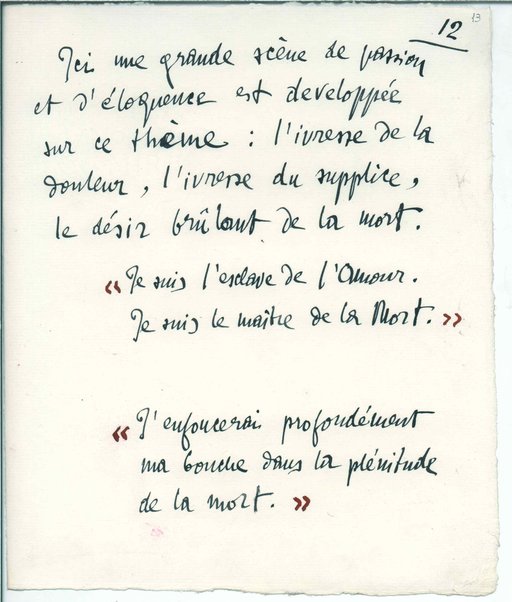 13
12
Ici une grande scène de passion
et d'éloquence est developpée
sur ce thème : l'ivresse de la
douleur, l'ivresse du supplice,
le désir brûlant de la mort.
« Je suis l'esclave de l'Amour.
Je suis le maître de la Mort. »
« J'enfoncerai profondément
ma bouche dans la plénitude
de la mort. »